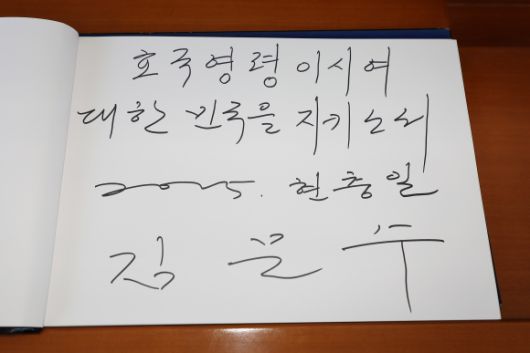 호국영령이시여
대한민국을 지키소서
2025. 현충일
김 문 수